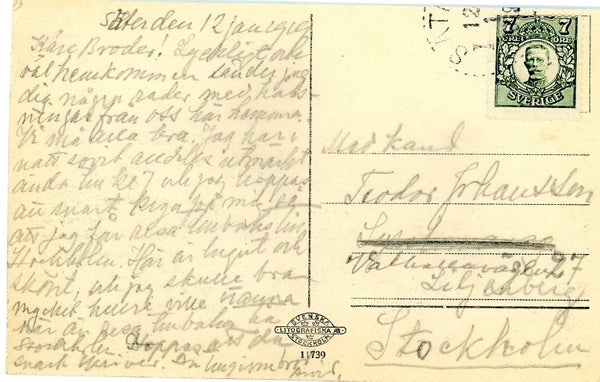 Säter den 12 jan 1919
Käre Broder! Lyckligt och
väl hemkommen sänder jag
dig några rader med häls-
ningar från oss här hemma.
Vi må alla bra. Jag har i
natt sovit alldeles utmärkt
ända till kl 7 och jag hoppas
att snart
att jag får resa tillbaka till
Stockholm. Här är lugnt och
skönt, och jag skulle bra
mycket hellre vilja stanna
här än resa tillbaka till
Stockholm. Hoppas att du
snart skriver. Din tillgivne bror
Med kand
Teodor Johansson
Valhallavägen 27
Liljenberg
Stockholm
SÄT
12
7 7
ÖRE ÖRE
SVERIGE
SVENSKA
LITOGRAFISKA AB.
STOCKHOLM
11739